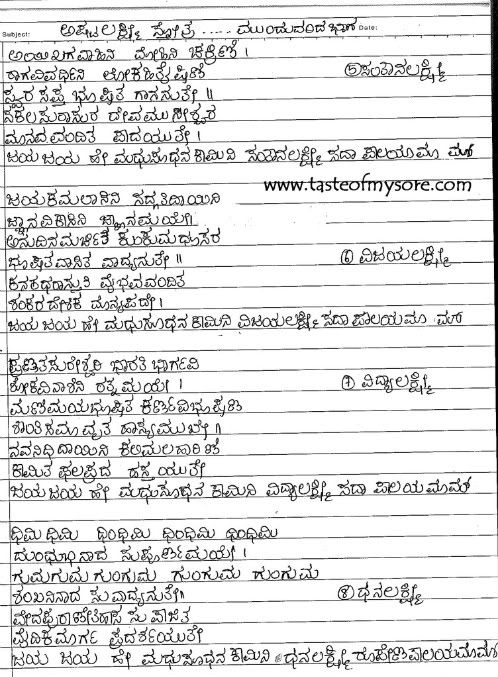 Subject: ಅಷ್ಟಲಕ್ಷ್ಮೀ ಸ್ತೋತ್ರ ..... ಮುಂದುವರಿದ ಭಾಗ Date:
ಅಯಿಖಗವಾಹಿನಿ ಮೋಹಿನಿ ಚಕ್ರಿಣಿ ।
ರಾಗವಿವರ್ಧಿನಿ ಲೋಕಹಿತೈಷಿಣಿ ⑤ ಸಂತಾನಲಕ್ಷ್ಮೀ
ಸ್ವರ ಸಪ್ತ ಭೂಷಿತ ಗಾನನುತೇ ॥
ಸಕಲ ಸುರಾಸುರ ದೇವ ಮುನೀಶ್ವರ
ಮಾನವ ವಂದಿತ ಪಾದಯುತೇ ।
ಜಯ ಜಯ ಹೇ ಮಧುಸೂಧನ ಕಾಮಿನಿ ಸಂತಾನಲಕ್ಷ್ಮೀ ಸದಾ ಪಾಲಯ ಮಾ ಮ್
www.tasteofmysore.com
ಜಯಕಮಲಾಸಿನಿ ಸದ್ಗತಿದಾಯಿನಿ
ಜ್ಞಾನವಿಕಾಸಿನಿ ಜ್ಞಾನಮಯೇ ।
ಅನುದಿನಮರ್ಚಿತ ಕುಂಕುಮಧೂಸರ
ಭೂಷಿತವಾಸಿತ ವಾದ್ಯನುತೇ ॥ ⑥ ವಿಜಯಲಕ್ಷ್ಮೀ
ಕನಕಧಾರಾಸ್ತುತಿ ವೈಭವವಂದಿತ
ಶಂಕರ ದೇಶಿಕ ಮಾನ್ಯಪದೇ ।
ಜಯ ಜಯ ಹೇ ಮಧುಸೂಧನ ಕಾಮಿನಿ ವಿಜಯಲಕ್ಷ್ಮೀ ಸದಾ ಪಾಲಯ ಮಾ ಮ್
ಪ್ರಣತಸುರೇಶ್ವರಿ ಭಾರತಿ ಭಾರ್ಗವಿ
ಶೋಕವಿನಾಶಿನಿ ರತ್ನಮಯೇ । ⑦ ವಿದ್ಯಾಲಕ್ಷ್ಮೀ
ಮಣಿಮಯಭೂಷಿತ ಕರ್ಣವಿಭೂಷಣ
ಶಾಂತಿಸಮಾವೃತ ಹಾಸ್ಯಮುಖೇ ॥
ನವನಿಧಿದಾಯಿನಿ ಕಲಿಮಲಹಾರಿಣಿ
ಕಾಮಿತ ಫಲಪ್ರದ ಹಸ್ತಯುತೇ
ಜಯ ಜಯ ಹೇ ಮಧುಸೂಧನ ಕಾಮಿನಿ ವಿದ್ಯಾಲಕ್ಷ್ಮೀ ಸದಾ ಪಾಲಯಮಾಮ್
ಧಿಮಿ ಧಿಮಿ ಧಿಂಧಿಮಿ ಧಿಂಧಿಮಿ ಧಿಂಧಿಮಿ
ದುಂಧುಭಿನಾದ ಸುಪೂರ್ಣಮಯೇ ।
ಗುಮಗುಮ ಗುಂಗುಮ ಗುಂಗುಮ ಗುಂಗುಮ
ಶಂಖನಿನಾದ ಸುವಾದ್ಯನುತೇ ॥ ⑧ ಧನಲಕ್ಷ್ಮೀ
ವೇದಪುರಾಣೇತಿಹಾಸ ಸುಪೂಜಿತ
ವೈದಿಕಮಾರ್ಗ ಪ್ರದರ್ಶಯುತೇ
ಜಯ ಜಯ ಹೇ ಮಧುಸೂಧನ ಕಾಮಿನಿ ಧನಲಕ್ಷ್ಮೀ ರೂಪೇಣ ಪಾಲಯಮಾಮ್